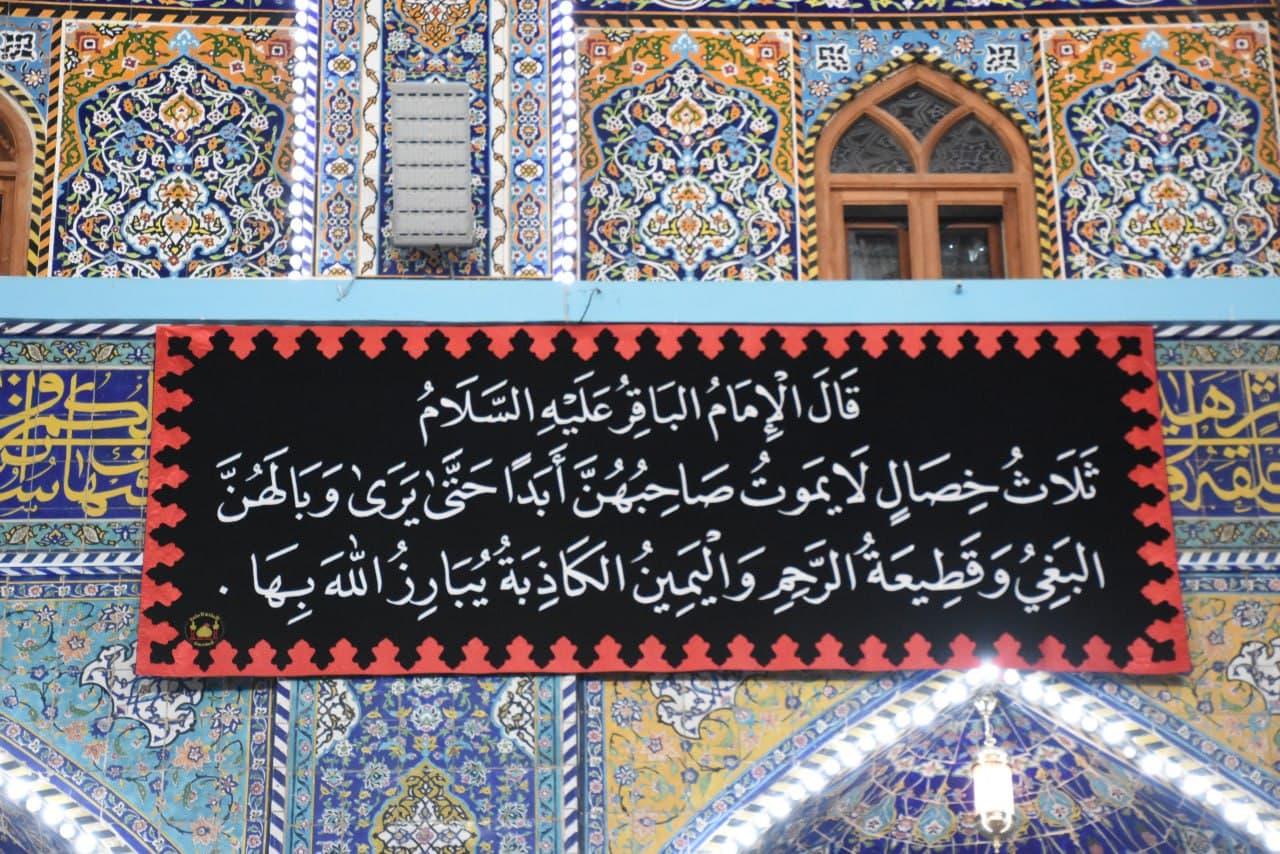 قَالَ الْإِمَامُ البَاقِرُ عَلَيْهِ السَّلَامُ
ثَلَاثُ خِصَالٍ لَا يَمَوتُ صَاحِبُهُنَّ أَبَدًا حَتَّىٰ يَرَىٰ وَبَالَهُنَّ
البَغِيُ وَقَطِيعَةُ الرَّحِمِ وَالْيَمِينُ الكَاذِبَةُ يُبَارِزُ اللهَ بِهَا .